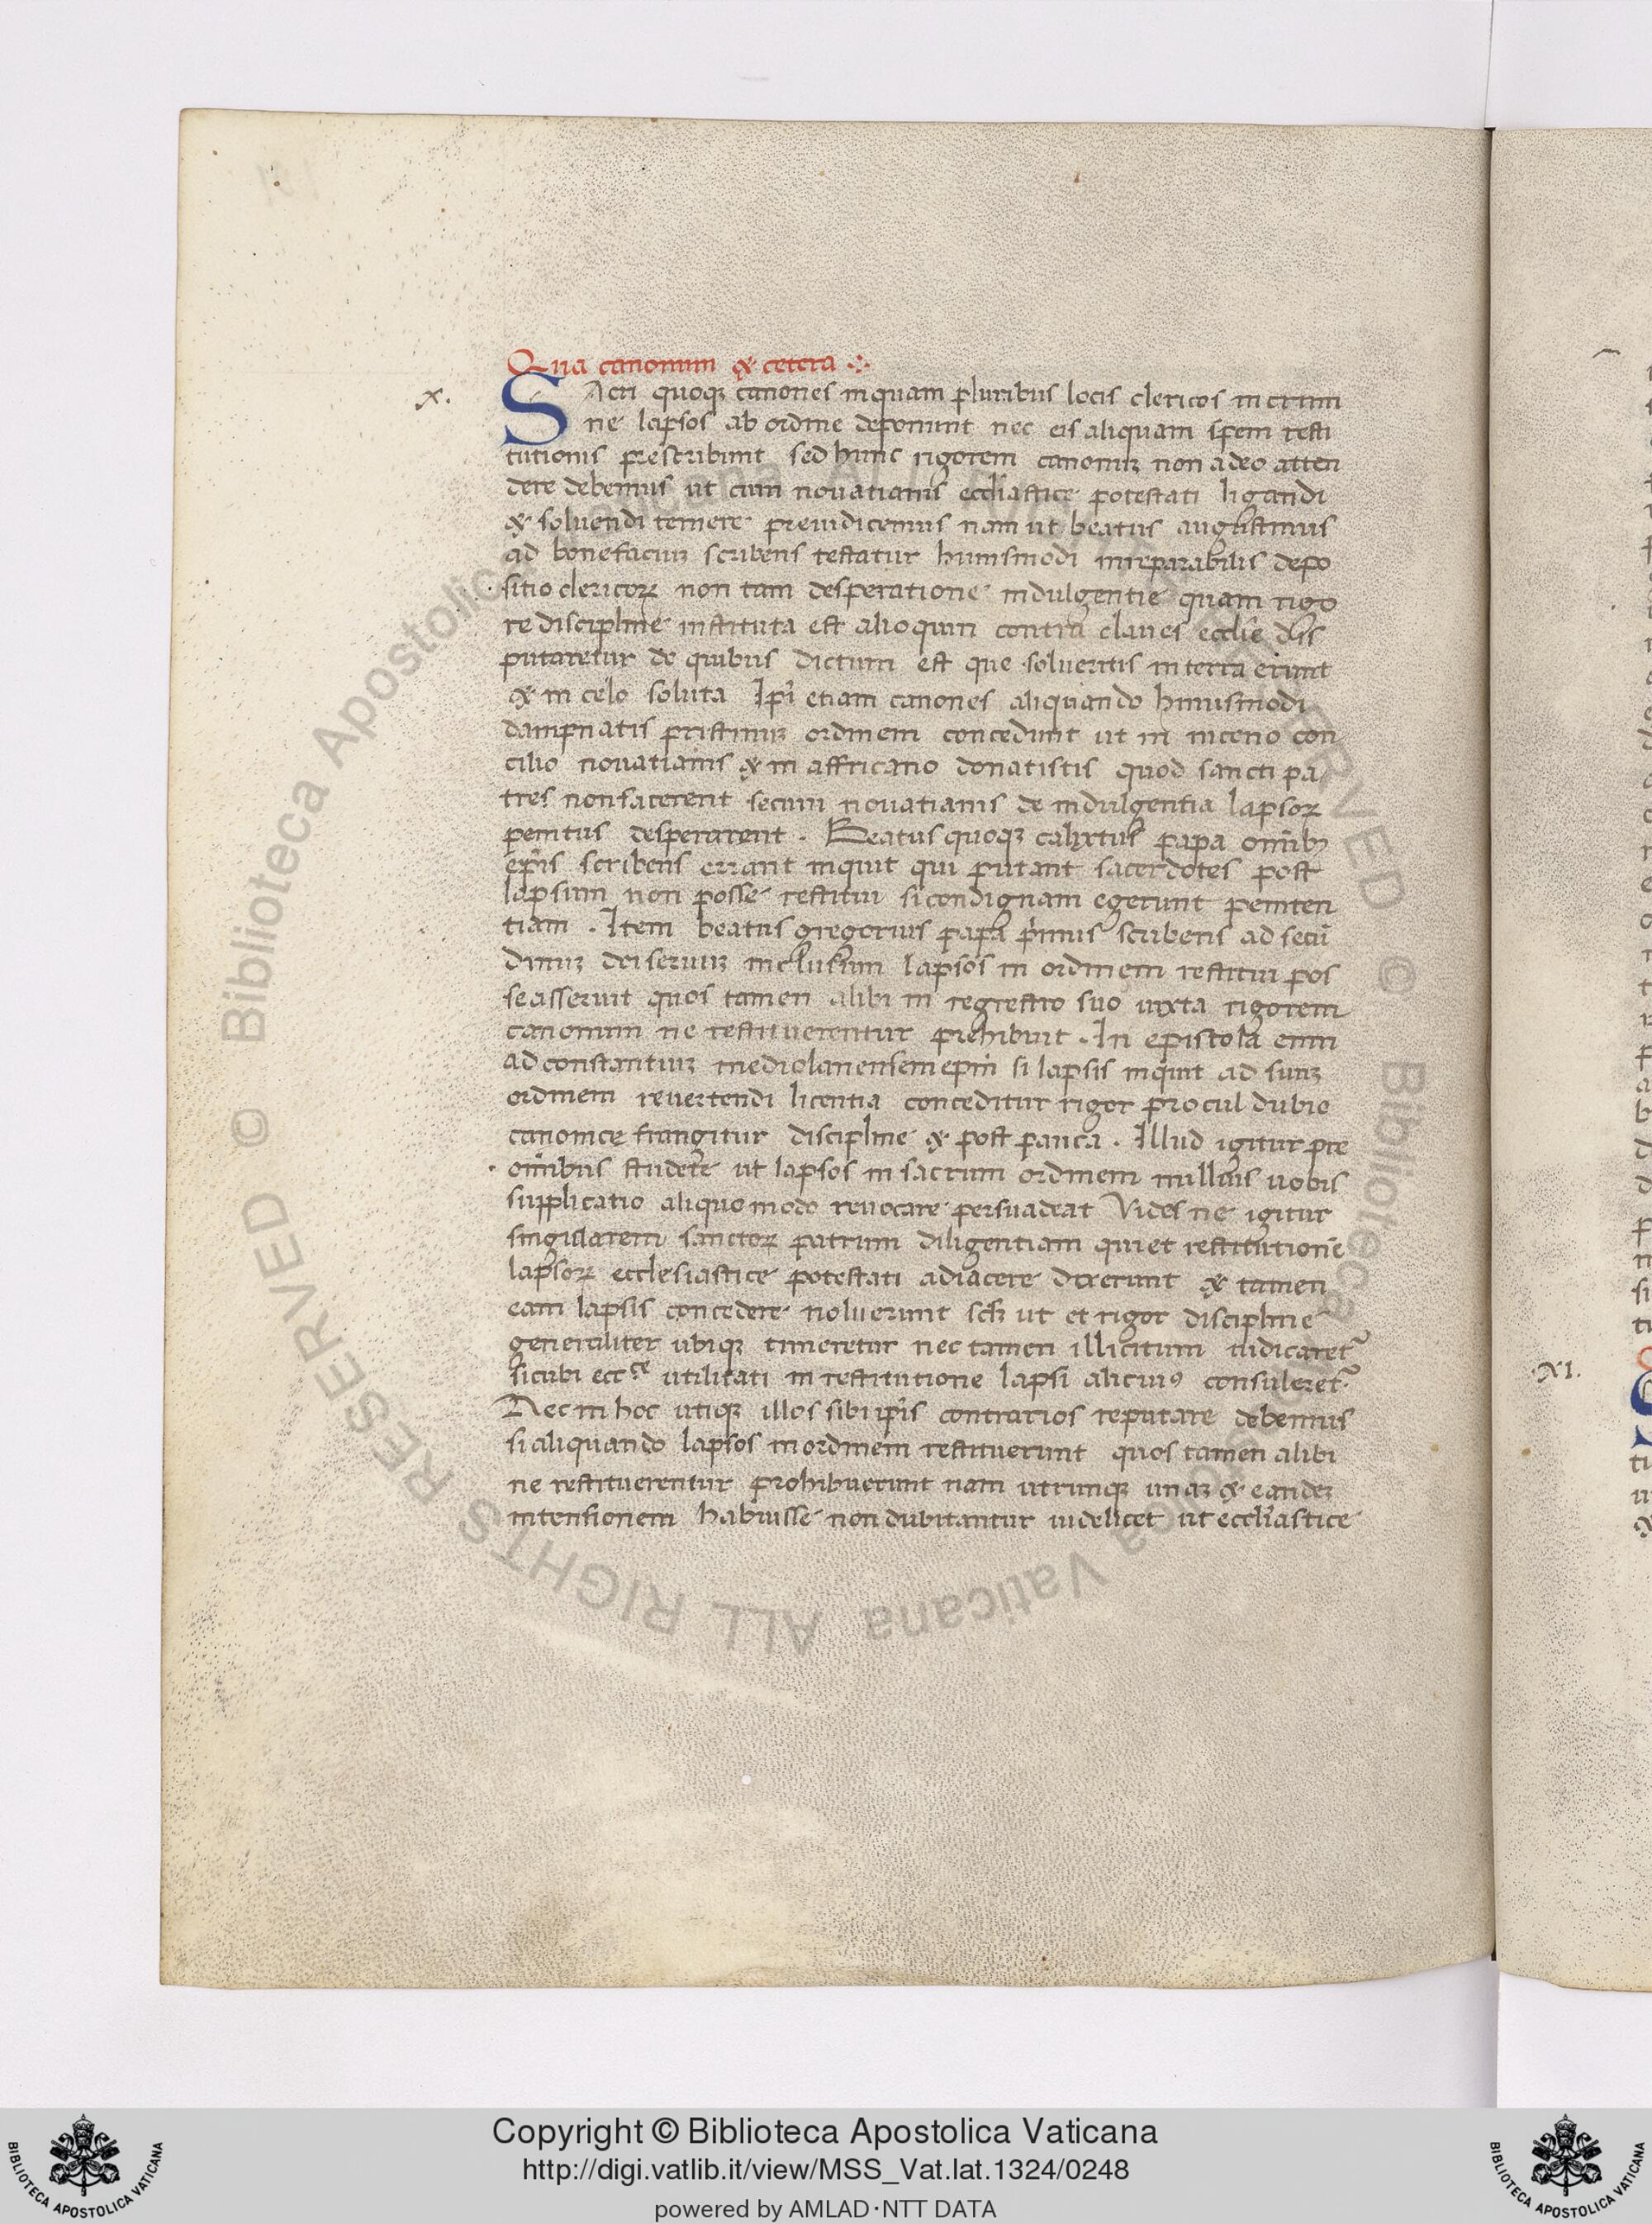 Qua canonum & cetera
X.
SAcri quoqʒ canones inquam pluribus locis clericos in crimi
ne lapsos ab ordine deponunt nec eis aliquam spem resti
tutionis prescribunt sed hunc rigorem canonuʒ non adeo atten
dere debemus ut cum novatianis eccliastice potestati ligandi
& solvendi temere preiudicemus nam ut beatus augustinus
ad bonefaciuʒ scribens testatur huiusmodi inreparabilis depo
sitio clericoꝝ non tam desperatione indulgentie quam rigo
re discipline instituta est alioquin contra claves ecclie dis
putaretur de quibus dictum est que solveritis in terra erunt
& in celo soluta Ipi etiam canones aliquando huiusmodi
dampnatis pristinuʒ ordinem concedunt ut in niceno con
cilio novatianis & in affricano donatistis quod sancti pa
tres non facerent si cum novatianis de indulgentia lapsoꝝ
penitus desperarent. Beatus quoqʒ calixtus papa omibʒ
epis scribens errant inquit qui putant sacerdotes post
lapsum non posse restitui si condignam egerunt peniten
tiam. Item beatus gregorius papa primus scribens ad secū
dinuʒ dei servuʒ inclusum lapsos in ordinem restitui pos
se asseruit quos tamen alibi in regestro suo iuxta rigorem
canonum ne restituerentur prehibuit. In epistola enim
ad constantiuʒ mediolanensem epm si lapsis inquit ad suuʒ
ordinem revertendi licentia conceditur rigor procul dubio
canonice frangitur discipline & post pauca. Illud igitur pre
omibus studete ut lapsos in sacrum ordinem nullius vobis
supplicatio aliquo modo revocare persuadeat Vides ne igitur
singularem sanctoꝝ patrum diligentiam qui et restitutionē
lapsoꝝ ecclesiastice potestati adiacere dixerunt & tamen
eam lapsis concedere noluerunt scʒ ut et rigor discipline
generaliter ubiqʒ timeretur nec tamen illicitum iudicaret᷑
sicubi ecce utilitati in restitutione lapsi alicuiꝰ consuleret᷑.
Nec in hoc utiqʒ illos sibi ipis contrarios reputare debemus
si aliquando lapsos in ordinem restituerunt quos tamen alibi
ne restituerentur prohibuerunt nam utrunqʒ unaʒ & eandeʒ
intensionem habuisse non dubitantur videlicet ut eccliastice
XI.
Copyright © Biblioteca Apostolica Vaticana
http://digi.vatlib.it/view/MSS_Vat.lat.1324/0248
powered by AMLAD·NTT DATA
BIBLIOTECA APOSTOLICA VATICANA
BIBLIOTECA APOSTOLICA VATICANA
© Biblioteca Apostolica Vaticana ALL RIGHTS RESERVED